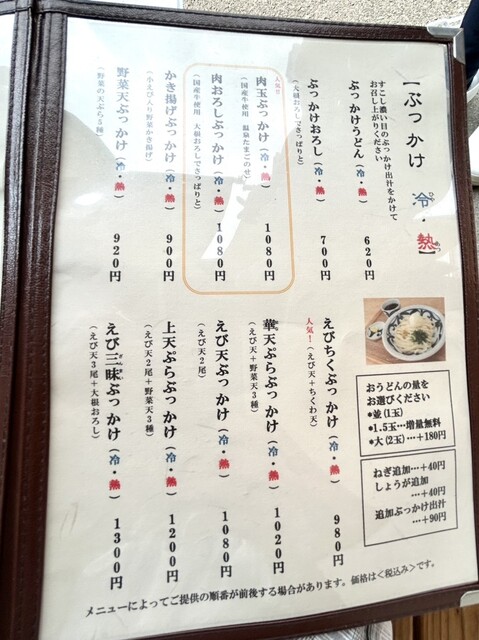 【ぶっかけ 冷・熱】
ひや
あつ
すこし濃い目のぶっかけ出汁をかけて
お召し上がりください
ぶっかけうどん(冷・熱) 620円
ぶっかけおろし(冷・熱) 700円
(大根おろしでさっぱりと)
人気!!
肉玉ぶっかけ(冷・熱) 1080円
(国産牛使用 温泉たまごのせ)
肉おろしぶっかけ(冷・熱) 1080円
(国産牛使用 大根おろしでさっぱりと)
かき揚げぶっかけ(冷・熱) 900円
(小えび入り野菜かき揚げ)
野菜天ぶっかけ(冷・熱) 920円
(野菜の天ぷら5種)
えびちくぶっかけ(冷・熱) 980円
人気!(えび天+ちくわ天)
華天ぷらぶっかけ(冷・熱) 1020円
(えび天+野菜天3種)
えび天ぶっかけ(冷・熱) 1080円
(えび天2尾)
上天ぷらぶっかけ(冷・熱) 1200円
(えび天2尾+野菜天3種)
えび三昧ぶっかけ(冷・熱) 1300円
(えび天3尾+大根おろし)
おうどんの量を
お選びください
•並(1玉)
•1.5玉…増量無料
•大(2玉)…+180円
ねぎ追加…+40円
しょうが追加
…+40円
追加ぶっかけ出汁
…+90円
メニューによってご提供の順番が前後する場合があります。価格は<税込み>です。